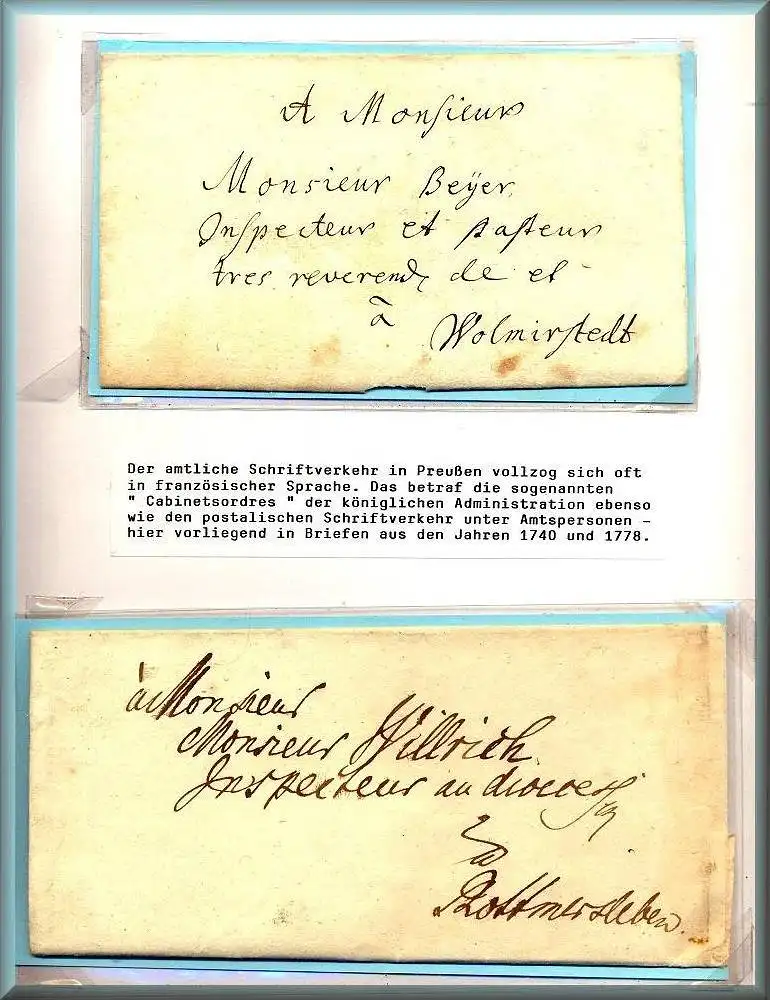 A Monsieur
Monsieur Beÿer,
Inspecteur et pasteur
tres reverend, de et
à Wolmirstedt
Der amtliche Schriftverkehr in Preußen vollzog sich oft
in französischer Sprache. Das betraf die sogenannten
" Cabinetsordres " der königlichen Administration ebenso
wie den postalischen Schriftverkehr unter Amtspersonen –
hier vorliegend in Briefen aus den Jahren 1740 und 1778.
à Monsieur
Monsieur Willrich
Inspecteur au
à
Rottmersleben.